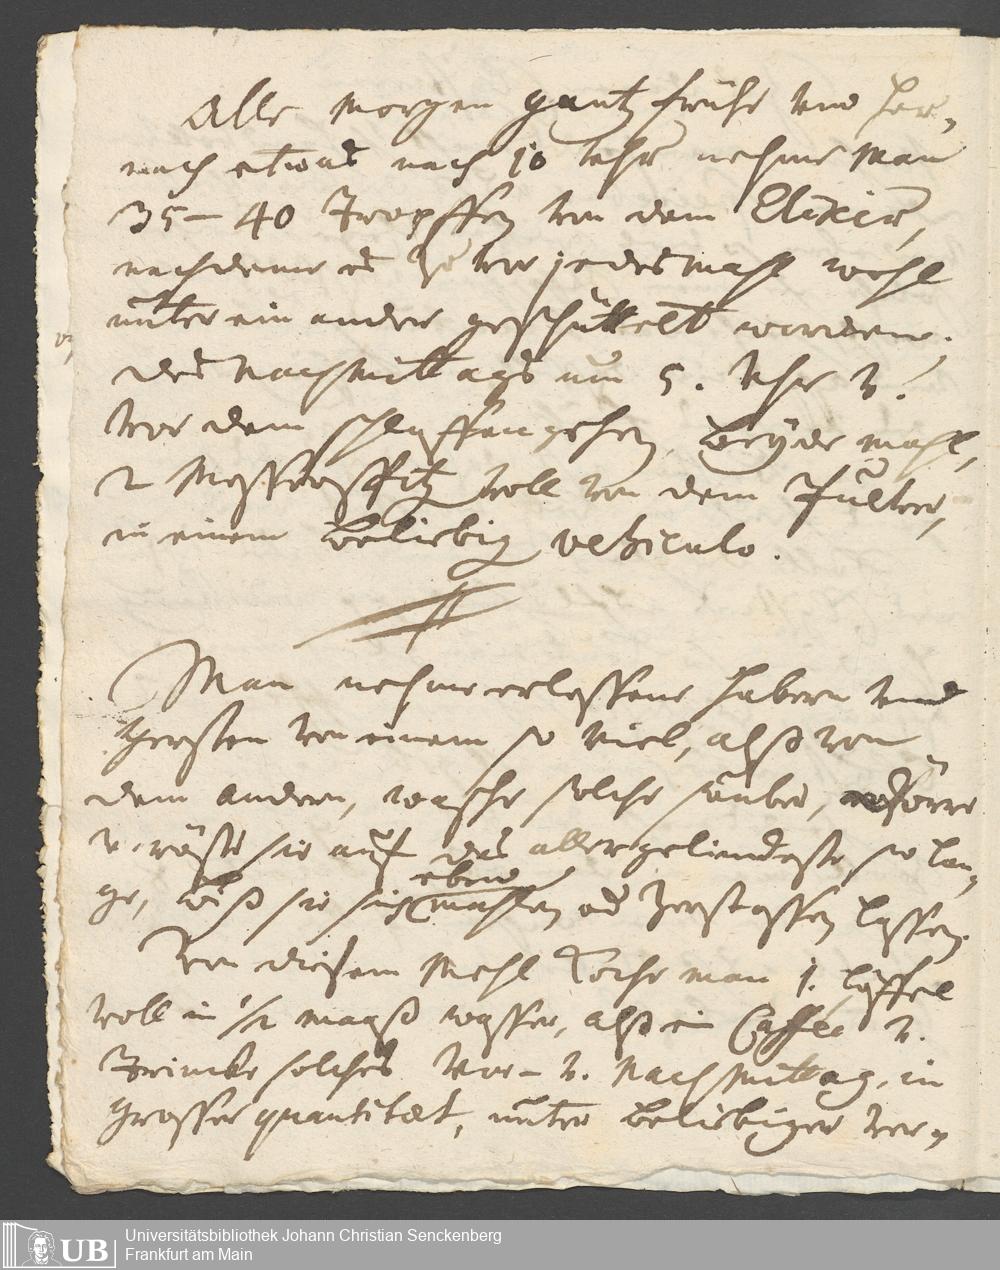 Alle morgen gantz frühe und her,
nach etwas nach 10 Uhr nehme man
35 – 40 Tropffen von dem Elixir,
nachdeme es zuvor jedesmahl wohl
unter ein ander geschüttelt worden.
des nachmittags um 5. Uhr u.
vor dem schlaffengehen beyde mahl,
2 Messerspitz voll von dem Pulver,
in einem beliebig vehiculo.
Man nehme erlessene Habern und
Gersten von einem so viel, alß von
dem andern, wasche solche sauber, dörre
u. röste sie auf das allergelindeste so lan,
ge, biß sie sich eben mahlen od zerstossen lassen.
Von diesem Mehl koche man 1. Löffel
voll in 1/2 maaß wasser, alß ein Caffée u.
trincke solches vor- u. nachmittag, in
grosser quantitæt, unter beliebiger ver,
UB
Universitätsbibliothek Johann Christian Senckenberg
Frankfurt am Main